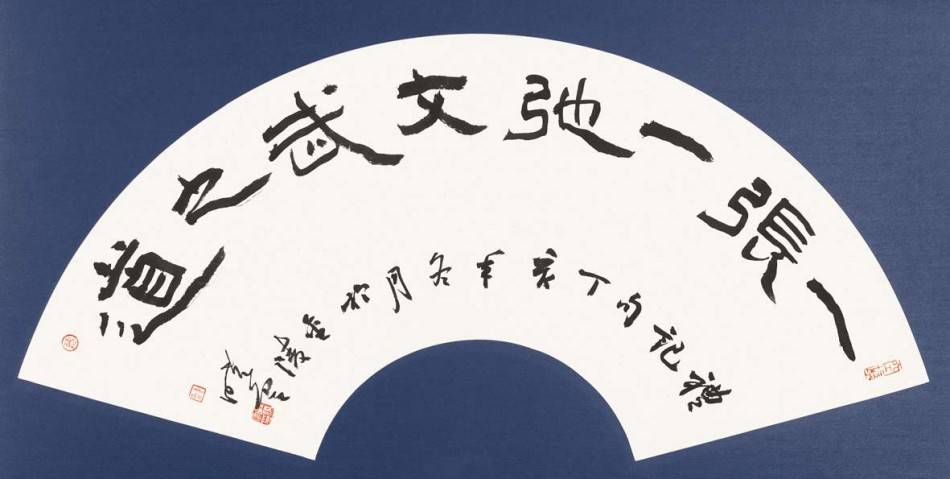 一張一弛文武之道
禮記句丁亥年冬月於金陵